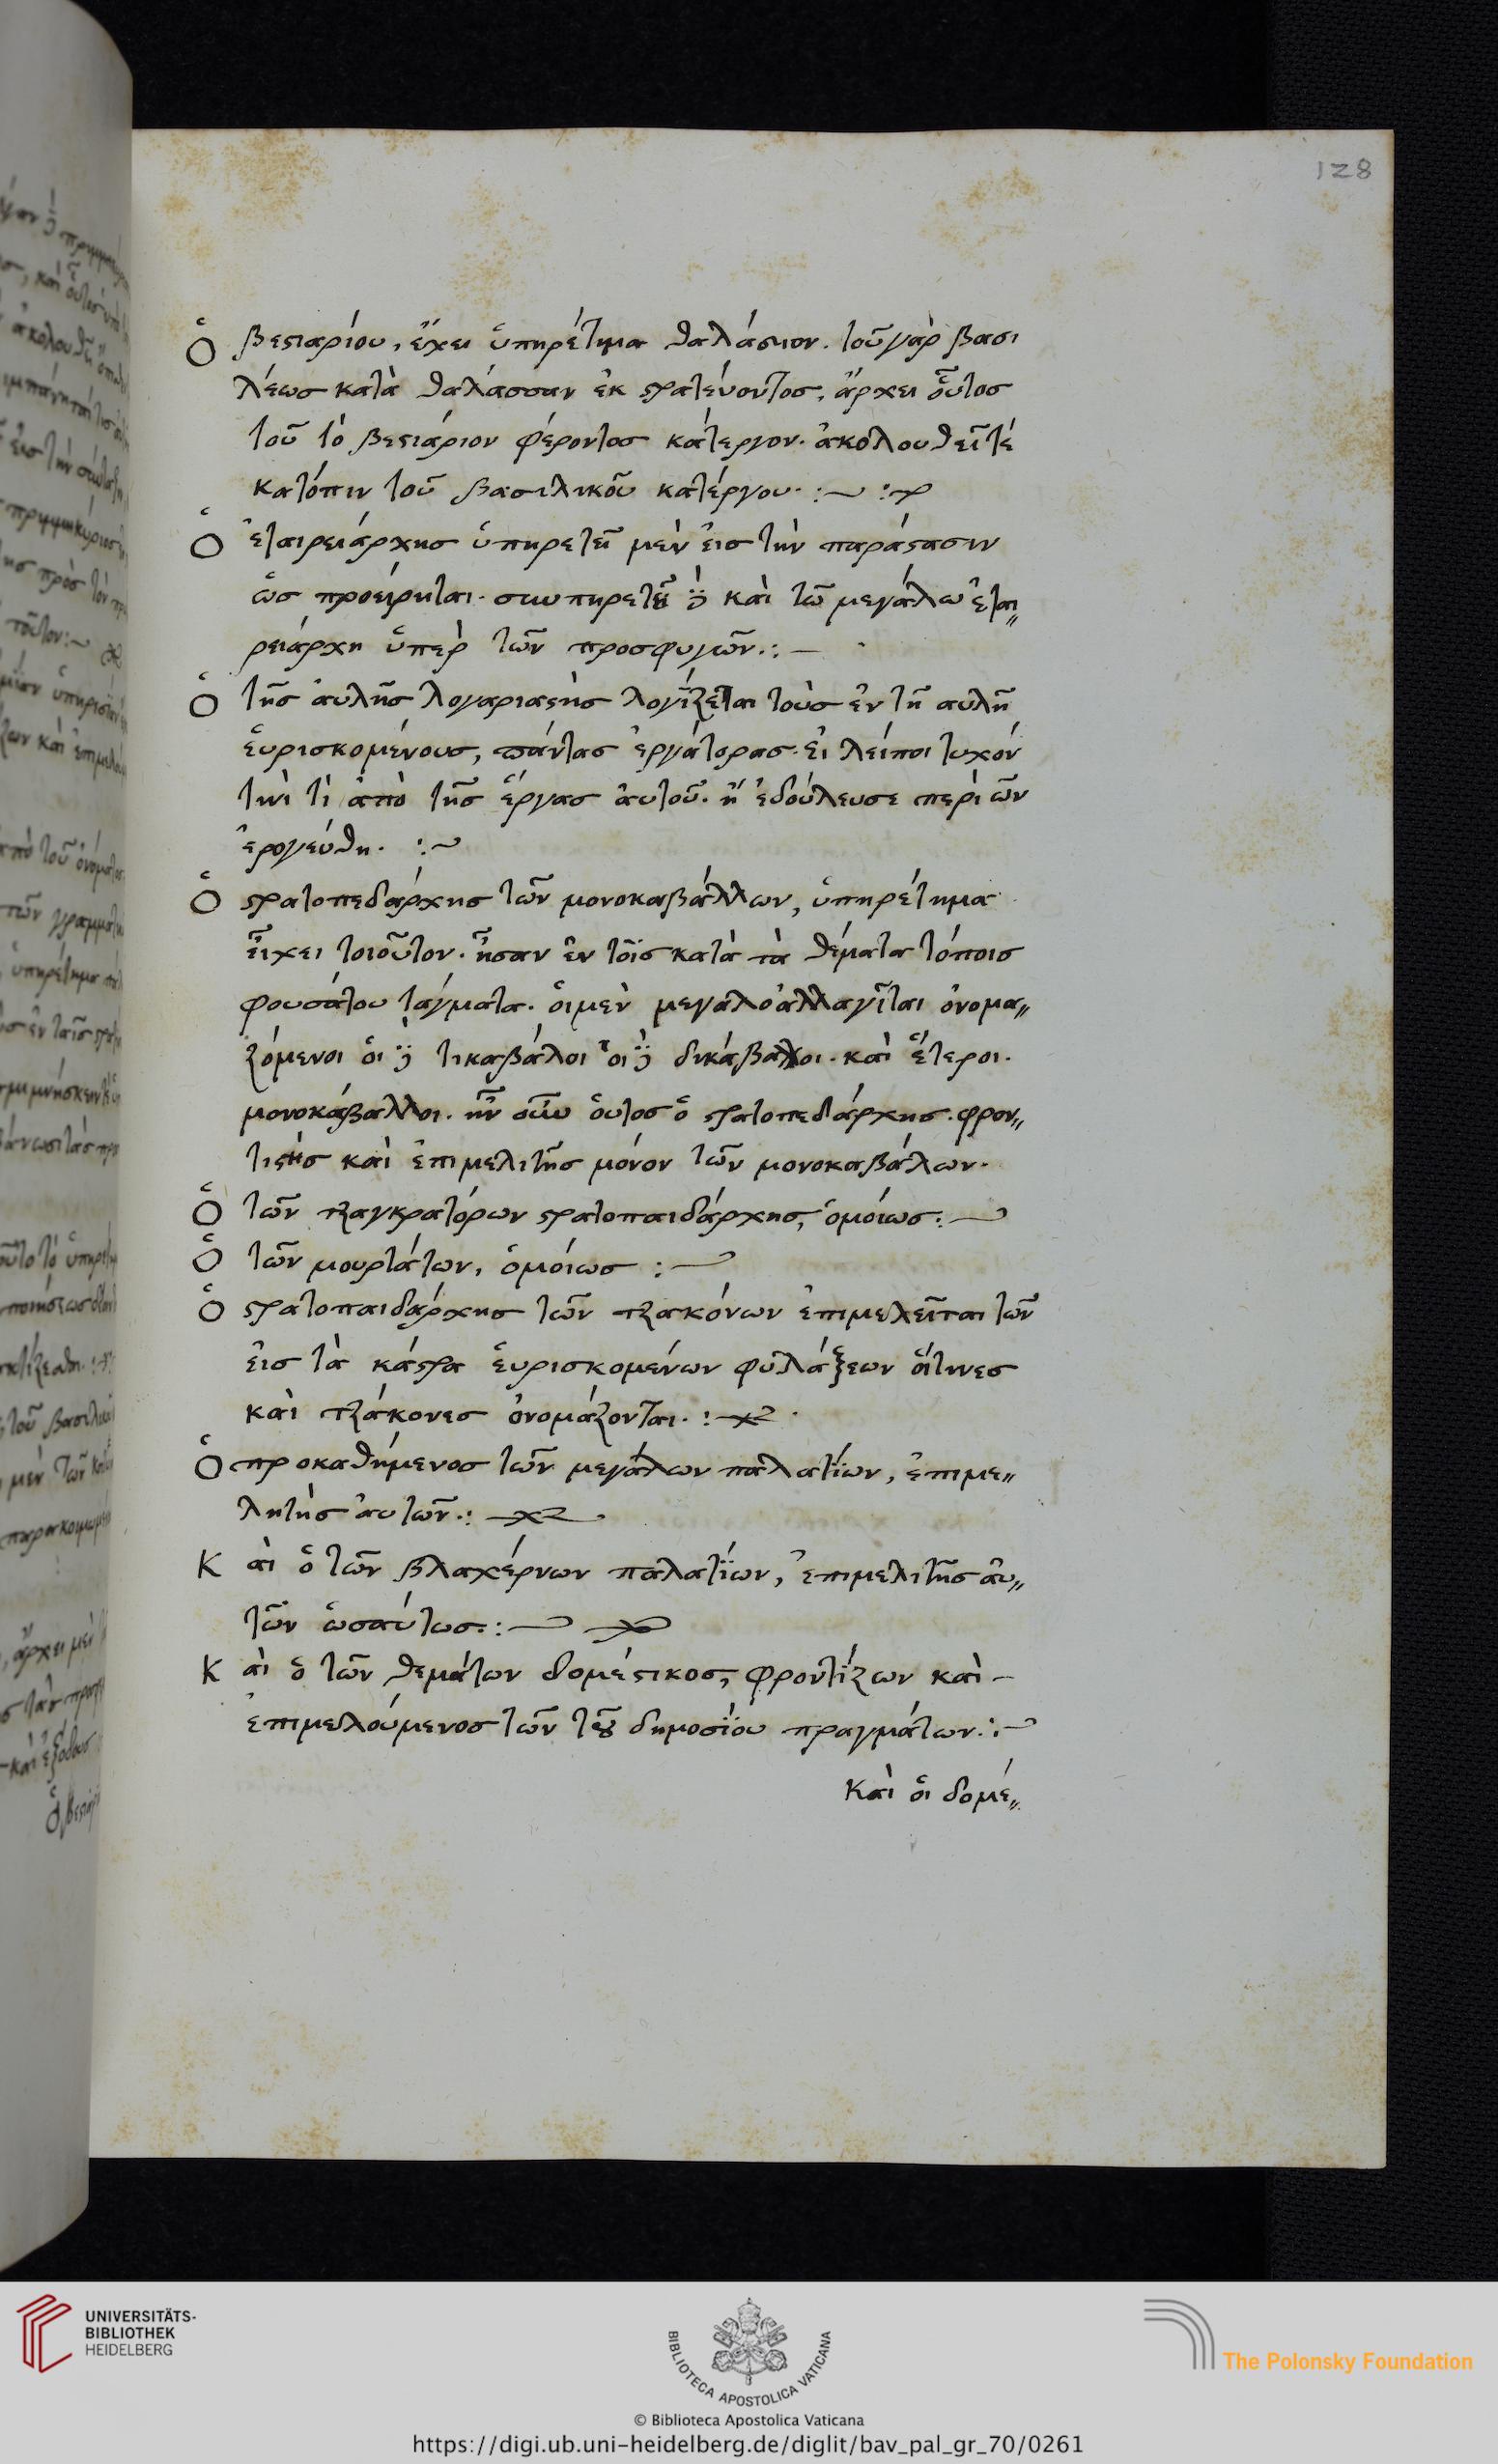 128
Ὁ βεστιαρίου, ἔχει ὑπηρέτημα θαλάσιον. τοῦ γὰρ βασι
λέως κατὰ θαλάσσαν ἐκ στρατεύοντος, ἄρχει οὗτος
τοῦ τὸ βεστιάριον φέροντος κάτεργον. ἀκολουθεῖ τέ
κατόπιν τοῦ βασιλικοῦ κατέργου. :~ :~
Ὁ ἑταιρειάρχης ὑπηρετεῖ μὲν εἰς τὴν παράστασιν
ὡς προείρηται. συνυπηρετεῖ δὲ καὶ τῶ μεγάλω ἑται〃
ρειάρχη ὑπὲρ τῶν προσφυγῶν.:. —
Ὁ τῆς αὐλῆς λογαριαστὴς λογίζεται τοὺς ἐν τῆ αὐλῆ
εὑρισκομένους, πάντας ἐργάτορας. εἰ λείποι τυχόν
τινὶ τὶ ἀπὸ τῆς ἕργας αὐτοῦ. ἢ ἐδούλευσε περὶ ὧν
ἐρογεύθη. :~
Ὁ στρατοπεδάρχης τῶν μονοκαβάλλων, ὑπηρέτημα
εἶχει τοιοῦτον. ἦσαν ἐν τοῖς κατὰ τὰ θέματα τόποις
φουσάτου τάγματα. οἱ μὲν μεγαλοαλλαγῖται ὀνομα〃
ζόμενοι οἱ δὲ τικαβάλοι οἱ δὲ δικάβαλοι. καὶ ἕτεροι.
μονοκάβαλλοι. ἦν οὖν οὗτος ὁ στρατοπεδάρχης. φρον〃
τιστὴς καὶ ἐπιμελιτῆς μόνον τῶν μονοκαβάλων.
Ὁ τῶν τζαγκρατόρων στρατοπαιδάρχης, ὁμοίως. ~
Ὁ τῶν μουρτάτων, ὁμοίως : ~
Ὁ στρατοπαιδάρχης τῶν τζακόνων ἐπιμελεῖται τῶν
εἰς τὰ κάστρα εὑρισκομένων φυλάξεων οἵτινες
καὶ τζάκονες ὀνομάζονται. :~ .
Ὁ προκαθήμενος τῶν μεγάλων παλατίων, ἐπιμε〃
λητὴς αὐτῶν.: ~
Καὶ ὁ τῶν βλαχέρνων παλατίων, ἐπιμελιτῆς αὐ〃
τῶν ὡσαύτως.: ~ ~
Καὶ ὁ τῶν θεμάτων δομέστικος, φροντίζων καὶ –
ἐπιμελούμενος τῶν τοῦ δημοσίου πραγμάτων.:. ~
Καὶ οἱ δομέ〃
UNIVERSITÄTS-
BIBLIOTHEK
HEIDELBERG
BIBLIOTECA APOSTOLICA VATICANA
The Polonsky Foundation
© Biblioteca Apostolica Vaticana
https://digi.ub.uni-heidelberg.de/diglit/bav_pal_gr_70/0261